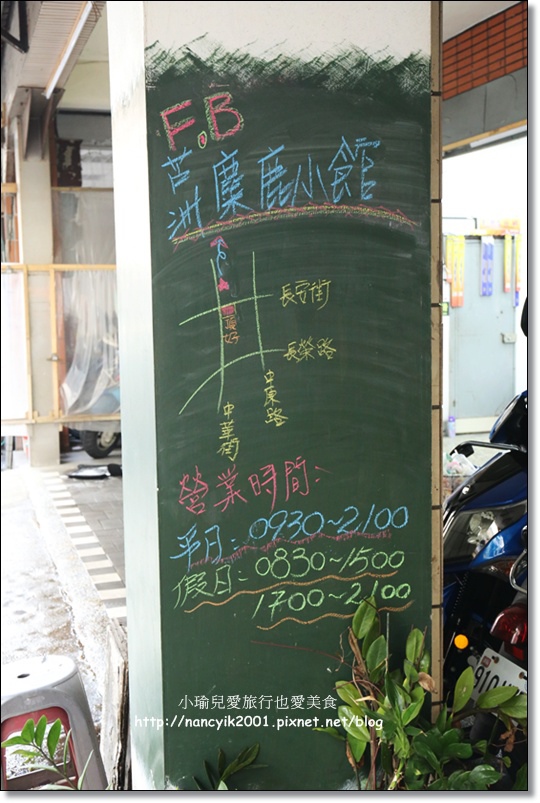 F.B
苫洲麋鹿小館
長安街
頂好
長榮路
中東路
中華街
營業時間:
平日:0930~2100
假日:0830~1500
1700~2100
小瑜兒愛旅行也愛美食
http://nancyik2001.pixnet.net/blog